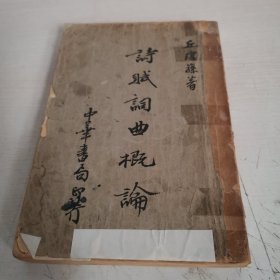 丘瓊蓀著
詩賦詞曲概論
中華書局印行